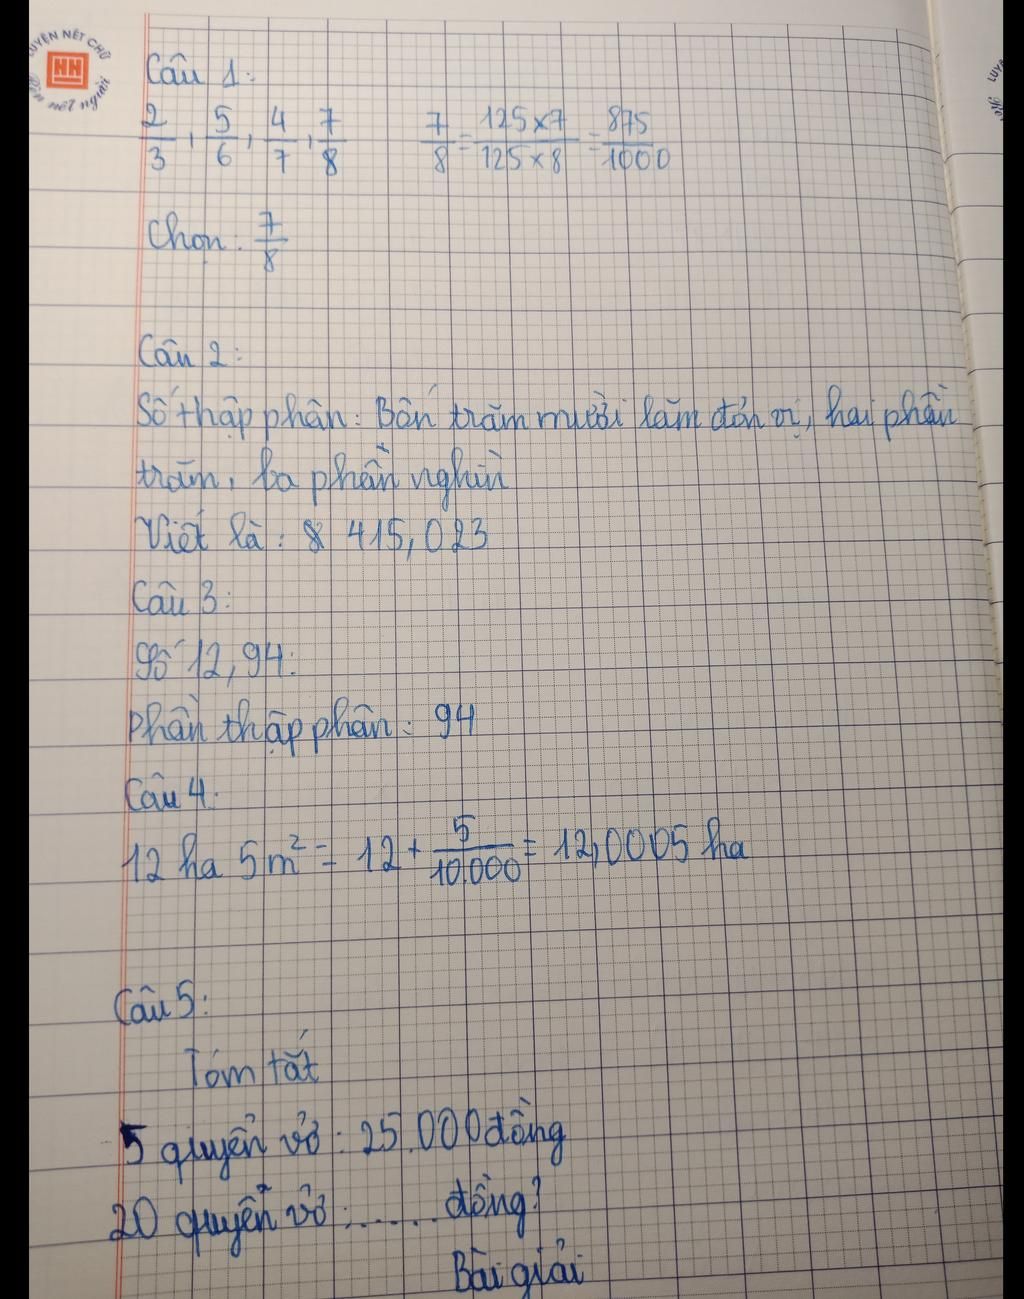 LUYỆN NÉT CHỮ
HH
Rèn nết người
Câu 1:
2/3, 5/6, 4/7, 7/8 7/8 = 125x7/125x8 = 875/1000
Chọn: 7/8
Câu 2:
Số thập phân: Bốn trăm mười lăm đơn vị, hai phần
trăm, ba phần nghìn
Viết là: 415,023
Câu 3:
Số 12,94:
Phần thập phân: 94
Câu 4:
12 ha 5m² = 12 + 5/10.000 = 12,0005 ha
Câu 5:
Tóm tắt
5 quyển vở: 25.000 đồng
20 quyển vở:...... đồng?
Bài giải